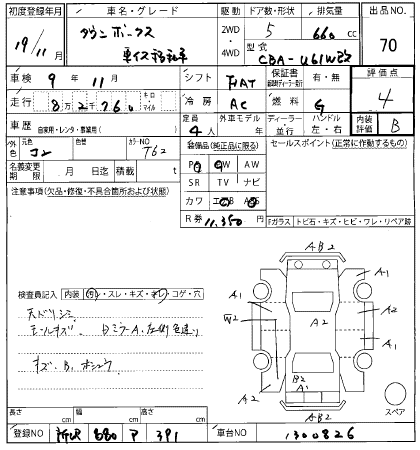 初度登録年月
車名・グレード
駆動
ドア数・形状
排気量
出品NO
19/11
タウンボックス
車イス移動車
2WD
4WD
5
660
cc
型式
CBA-U61W改
70
車検 9年 11月
シフト
FAT
保証書
評価点
4
走行
8万2千760
キロ
マイル
冷房
AC
燃料
G
車歴
自家用・レンタ・事業用( )
定員
4人
外車モデル
ディーラー・並行
ハンドル
左・右
内装評価
B
外色
元色
色替
カラーNO
T62
装備品(純正品に限る)
セールスポイント(正常に作動するもの)
名義変更期限
月 日迄
積載
t
PS PW AW
SR TV ナビ
カワ エアB ABS
注意事項(欠品・修復・不具合箇所および状態)
R券
11,350円
Fガラス
トビ石・キズ・ヒビ・ワレ・リペア跡
検査員記入
内装
ヨゴレ・スレ・キズ・コゲ・穴
AB2
A1
A1
A2
A2
W2
A1
B2
A1
A2
AB2
スペア
キズ.B.
長さ
cm
幅
cm
高さ
cm
登録NO
所沢 880 ア 391
車台NO
1300826